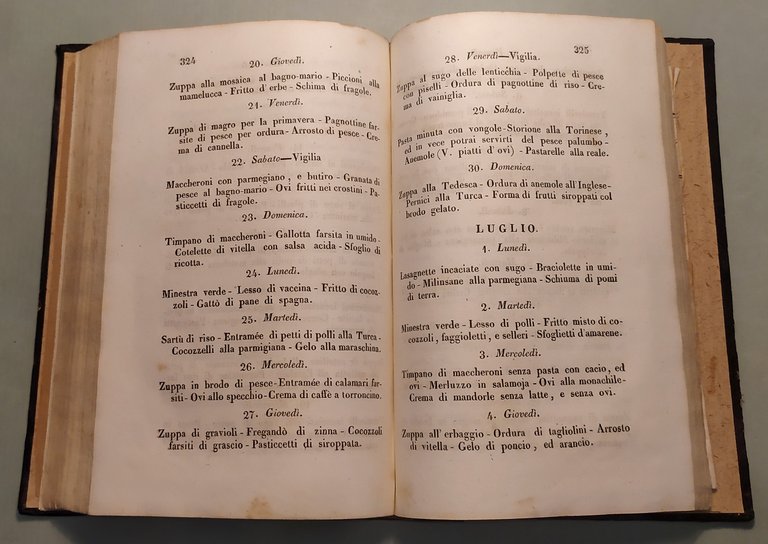 324
20. Giovedì.
Zuppa alla mosaica al bagno-mario - Piccioni alla
mamelucca - Fritto d'erbe - Schima di fragole.
21. Venerdì.
Zuppa di magro per la primavera - Pagnottine far-
site di pesce per ordura - Arrosto di pesce - Cre-
ma di cannella.
22. Sabato—Vigilia
Maccheroni con parmegiano, e butiro - Granata di
pesce al bagno-mario - Ovi fritti nei crostini - Pa-
sticcetti di fragole.
23. Domenica.
Timpano di maccheroni - Gallotta farsita in umido -
Cotelette di vitella con salsa acida - Sfoglio di
ricotta.
24. Lunedì.
Minestra verde - Lesso di vaccina - Fritto di cocoz-
zoli - Gattò di pane di spagna.
25. Martedì.
Sartù di riso - Entramée di petti di polli alla Turca -
Cocozzelli alla parmigiana - Gelo alla maraschina.
26. Mercoledì.
Zuppa in brodo di pesce - Entramée di calamari far-
siti - Ovi allo specchio - Crema di caffè a torroncino.
27. Giovedì.
Zuppa di gravioli - Fregandò di zinna - Cocozzoli
farsiti di grascio - Pasticcetti di siroppata.
325
28. Venerdì—Vigilia.
Zuppa al sugo delle lenticchia - Polpette di pesce
con piselli - Ordura di pagnottine di riso - Cre-
ma di vainiglia.
29. Sabato.
Pasta minuta con vongole - Storione alla Torinese,
ed in vece potrai servirti del pesce palumbo -
Anemole (V. piatti d'ovi) - Pastarelle alla reale.
30. Domenica.
Zuppa alla Tedesca - Ordura di anemole all'Inglese -
Pernici alla Turca - Forma di frutti siroppati col
brodo gelato.
LUGLIO.
1. Lunedì.
Lasagnette incaciate con sugo - Braciolette in umi-
do - Milinsane alla parmegiana - Schiuma di pomi
di terra.
2. Martedì.
Minestra verde - Lesso di polli - Fritto misto di co-
cozzoli, faggioletti, e selleri - Sfoglietti d'amarene.
3. Mercoledì.
Timpano di maccheroni senza pasta con cacio, ed
ovi - Merluzzo in salamoja - Ovi alla monachile -
Crema di mandorle senza latte, e senza ovi.
4. Giovedì.
Zuppa all'erbaggio - Ordura di tagliolini - Arrosto
di vitella - Gelo di poncio, ed arancio.